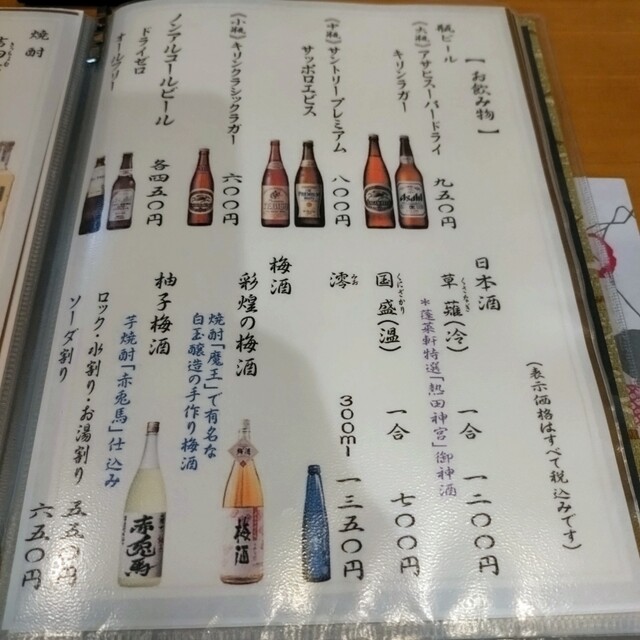 【お飲み物】
瓶ビール
(大瓶)アサヒスーパードライ
キリンラガー
九五〇円
(中瓶)サントリープレミアム
サッポロエビス
八〇〇円
(小瓶)キリンクラシックラガー
六〇〇円
ノンアルコールビール
ドライゼロ
オールフリー
各四五〇円
(表示価格はすべて税込みです)
日本酒
草薙(冷) 一合 一二〇〇円
くさなぎ
*蓬莱軒特選「熱田神宮」御神酒
国盛(温) 一合 七〇〇円
くにざかり
澪 300ml 一三五〇円
みお
梅酒
彩煌の梅酒
焼酎「魔王」で有名な
白玉醸造の手作り梅酒
柚子梅酒
芋焼酎「赤兎馬」仕込み
ロック・水割り・お湯割り 五五〇円
ソーダ割り 六五〇円
焼酎
Asahi
梅酒
赤兎馬